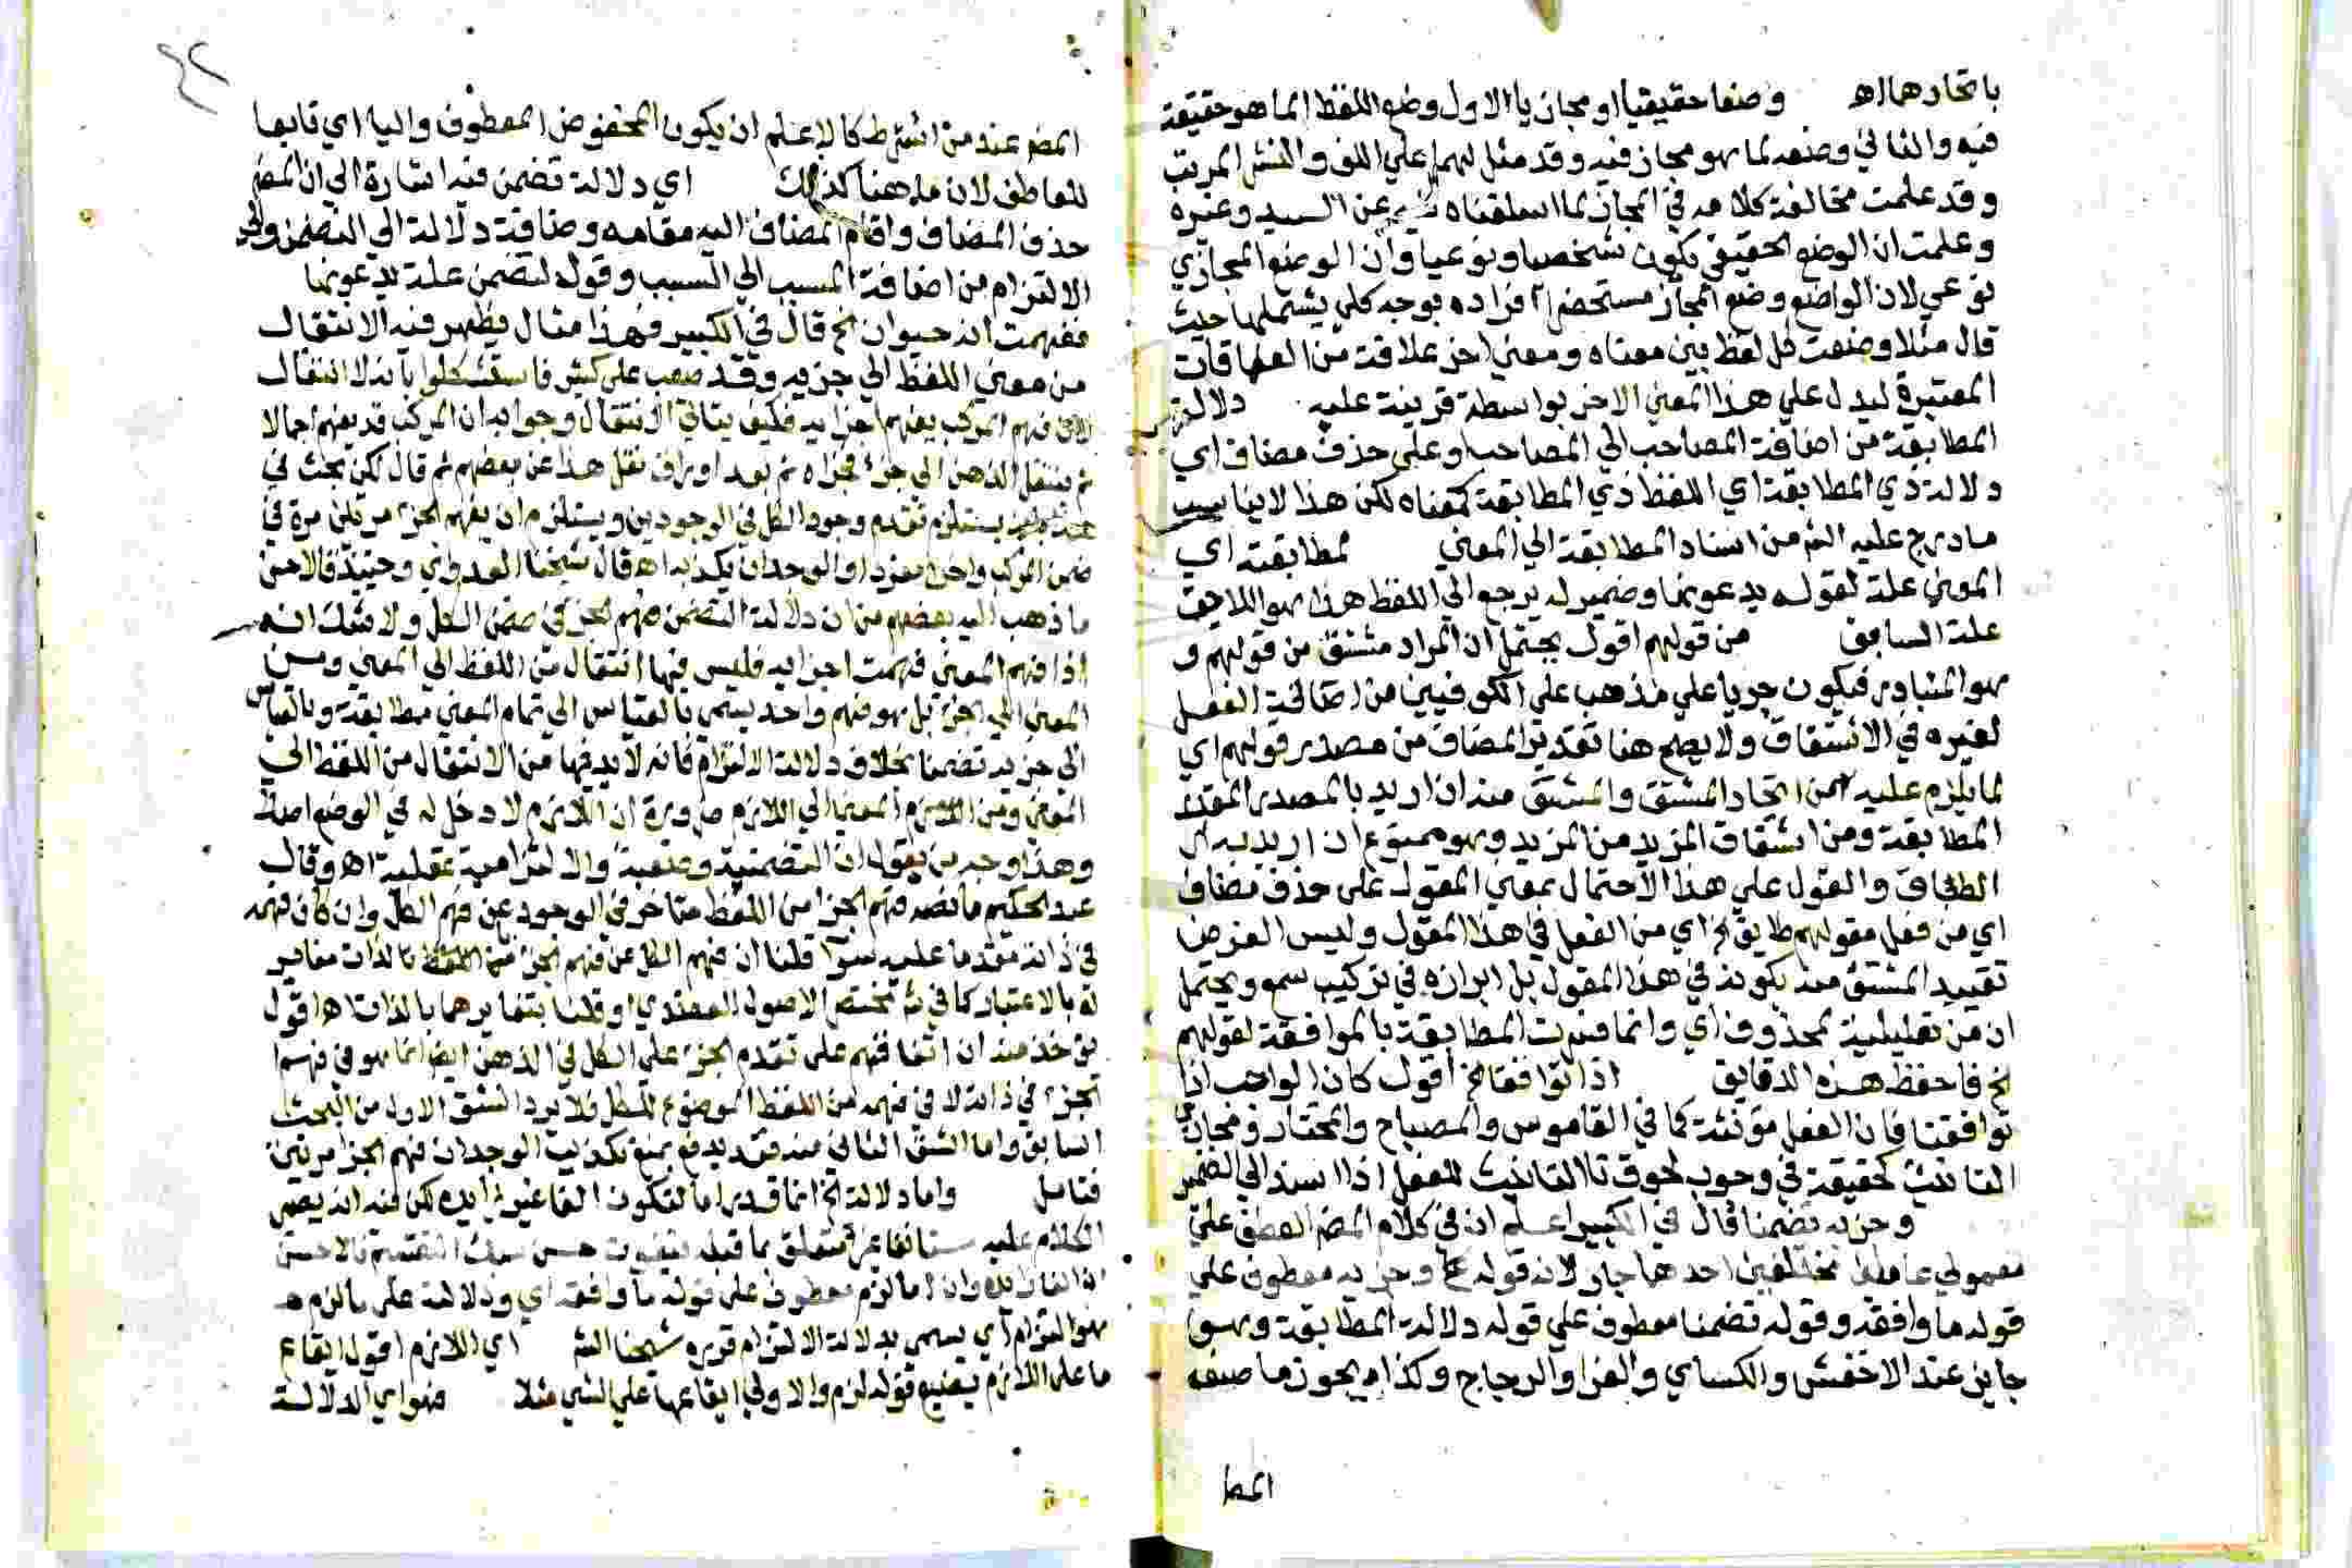 باتحادهما اه وضعا حقيقيا او مجازيا الاول وضع اللفظ لما هو حقيقة
فيه والثاني وضعه لما هو مجاز فيه وقد مثل لهما علي اللف والنشر المرتب
وقد علمت مخالفة كلامه في المجاز لما اسلفناه عن السيد وغيره
وعلمت ان الوضع الحقيقي يكون شخصيا ونوعيا وان الوضع المجازي
نوعي لان الواضع وضع المجاز مستحضرا افراده بوجه كلي يشتملها حيث
قال مثلا وضعت كل لفظ بين معناه ومعني اخر علاقة من العلاقات
المعتبرة ليدل علي هذا المعني الاخر بواسطة قرينة عليه دلالة
المطابقة من اضافة المصاحب الي المصاحب وعلي حذف مضاف اي
دلالة ذي المطابقة اي اللفظ ذي المطابقة لمعناه لكن هذا لا يناسب
ما درج عليه الشم من اسناد المطابقة الي المعني لمطابقته اي
المعني علة لقوله يدعونها وضمير له يرجع الي اللفظ هذا هو اللاحق
علة السابق من قولهم اقول يحتمل ان المراد مشتق من قولهم و
هو المتبادر فيكون جريا علي مذهب الكوفيين من اضافة الفعل
لغيره في الاشتقاق ولا يصح هنا تقدير المضاف من مصدر قولهم اي
لما يلزم عليه من اتحاد المشتق والمشتق منه ان اريد بالمصدر المقدر
المطابقة ومن اشتقاق المزيد من المزيد وهو ممنوع ان اريد به
الطباق والقول علي هذا الاحتمال بمعني المقول علي حذف مضاف
اي من فعل مقولهم طابق الخ اي من الفعل في هذا المقول وليس الغرض
تقييد المشتق منه بكونه في هذا المقول بل ابرازه في تركيب سمع ويحتمل
ان من تعليلية لمحذوف اي وانما فسرت المطابقة بالموافقة لقولهم
الخ فاحفظ هذه الدقايق اذا توافقا الخ اقول كان الواجب اذا
توافقتا فان الفعل مؤنثة كما في القاموس والمصباح والمختار ومجازي
التانيث كحقيقة في وجوب لحوق تا التانيث للفعل اذا اسند الي الضمير
وجزيه تضمنا قال في الكبير اعلم ان في كلام المضم العطف علي
معمولي عاملين مختلفين احدهما جار لان قوله وجزيه معطوف علي
قوله ما وافقه وقوله تضمنا معطوف علي قوله دلالة المطابقة وهو
جايز عند الاخفش والكساي والفرا والزجاج وكذا يجوز ما صنعه
المض
المضم عند من اشترط كالاعلم ان يكون المخفوض المعطوف واليا اي تابعا
للعاطف لان ما هنا كذلك اي دلالة تضمن فيه اشارة الي ان المضم
حذف المضاف واقام المضاف اليه مقامه وضافة دلالة الي التضمن
الالتزام من اضافة المسبب الي السبب وقوله لتضمن علة يدعونها
ففهمت انه حيوان الخ قال في الكبير فهذا مثال يظهر فيه الانتقال
من معني اللفظ الي جزيه وقد صعب علي كثير فاستشكلوا بانه لا انتقال
فهم المركب يفهم اجزايه فكيف يتاتي الانتقال وجوابه ان المركب قد يفهم اجمالا
ثم ينتقل الذهن الي جزء نقل هذا عن بعضهم ثم قال لكن بحث في
يستلزم تقدم وجود الكل في الوجودين ويستلزم ان يفهم الجزء مرتين مرة في
ضمن المركب واخري مفردا والوجدان يكذبه اه قال شيخنا العدوي وحينئذ فالاحسن
ما ذهب اليه بعضهم من ان دلالة التضمن فهم الجزء في ضمن الكل ولا شك انه
اذا فهم المعني فهمت اجزايه فليس فيها انتقال من اللفظ الي المعني ومن
المعني الي الجزء بل هو فهم واحد يسمي بالقياس الي تمام المعني مطابقة وبالقياس
الي جزيه تضمنا بخلاف دلالة الالتزام فانه لا بد فيها من الانتقال من اللفظ الي
المعني ومن المعني الي اللازم ضرورة ان اللازم لا دخل له في الوضع اصلا
وهذا وجه من يقول ان التضمنية وضعية والالتزامية عقلية اه وقال
عبد الحكيم ما نصه فهم الجزء من اللفظ متاخر في الوجود عن فهم الكل وان كان فهمه
في ذاته مقدما عليه سوا قلنا ان فهم الكل عن فهم الجزء من اللفظ بالذات مغاير
له بالاعتبار كما في شم مختصر الاصول العضدي او قلنا بتغايرهما بالذات اه اقول
يؤخذ منه ان اتفاقهم علي تقدم الجزء علي الكل في الذهن ايضا انما هو في فهم
الجزء في ذاته لا في فهمه من اللفظ الموضوع للكل فلا يرد الشق الاول من البحث
السابق واما الشق الثاني منه فقد يدفع بمنع تكذيب الوجدان فهم الجزء مرتين
فتامل واما دلالة الخ انما قدر اما لتكون الفا غير زايدة لكن فيه انه يصير
الكلام عليه مستانفا غير متعلق بما قبله فيفوت حسن سبك التقسيم فالاحسن
ان الفا زايدة وان ما لزم معطوف علي قوله ما وافقه اي ودلالة علي ما لزم
فهو التزام اي يسمي بدلالة الالتزام قرره شيخنا الشم اي اللازم اقول ايقاع
ما علي اللازم يضيع قوله لزم والاولي ايقاعها علي الشي مثلا فهو اي الدلالة